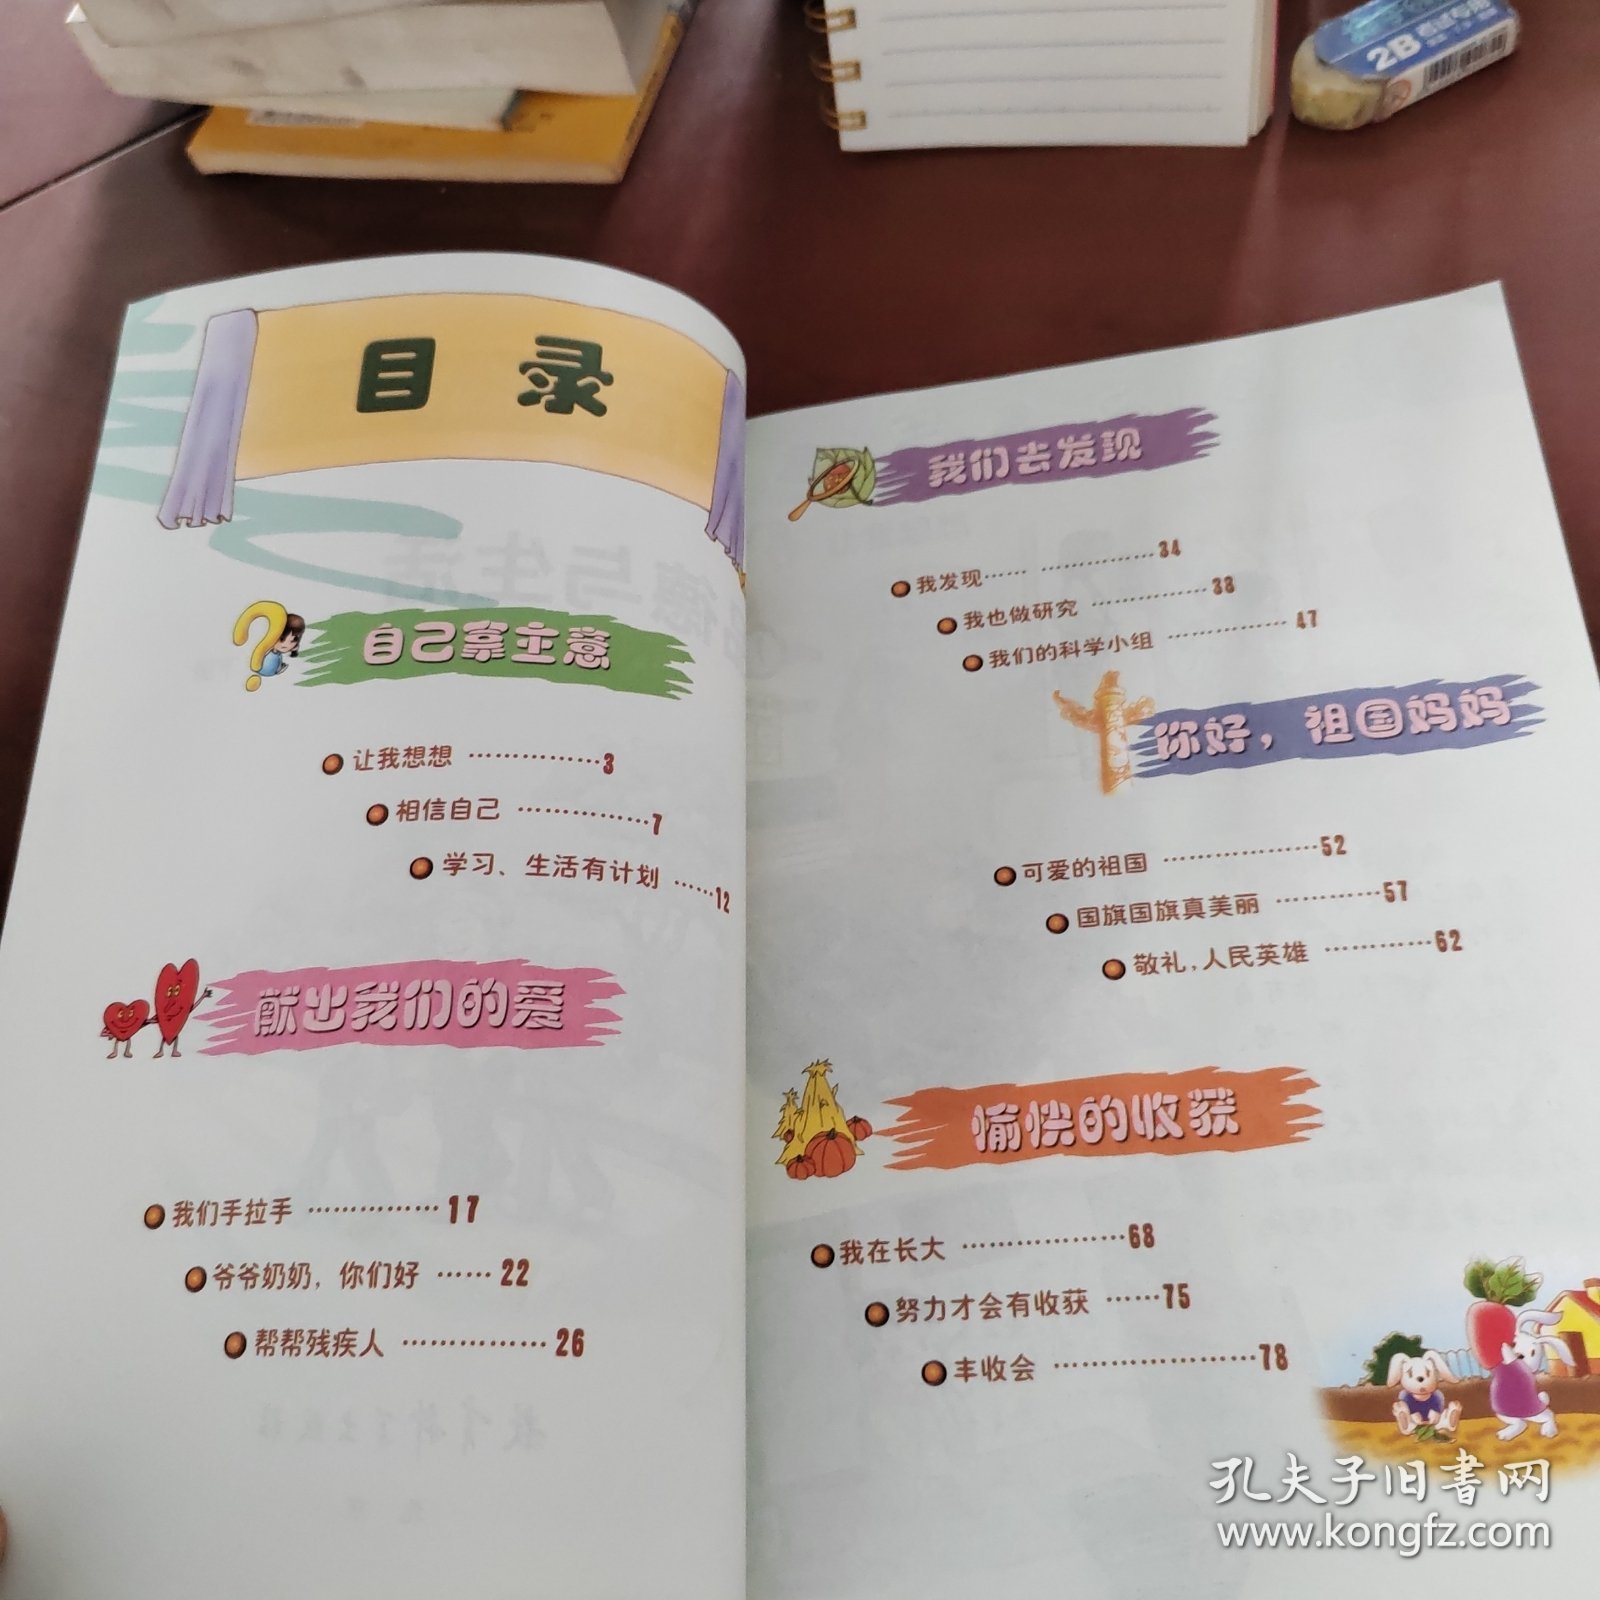 2B
考试专用
目 录
自己拿主意
让我想想 ……………3
相信自己 ……………7
学习、生活有计划 ……12
献出我们的爱
我们手拉手 ……………17
爷爷奶奶，你们好 ……22
帮帮残疾人 ……………26
我们去发现
我发现…… ……………34
我也做研究 ……………38
我们的科学小组 ……………47
你好，祖国妈妈
可爱的祖国 ………………52
国旗国旗真美丽 …………57
敬礼，人民英雄 …………62
愉快的收获
我在长大 ………………68
努力才会有收获 ……75
丰收会 ……………………78
孔夫子旧书网
www.kongfz.com